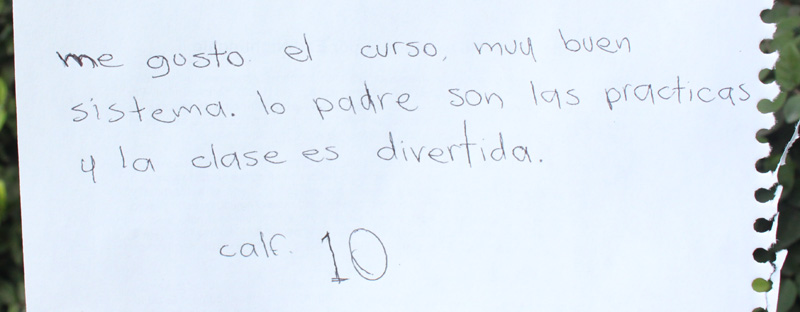 me gusto el curso, muy buen
sistema. lo padre son las practicas
y la clase es divertida.
calf. 10